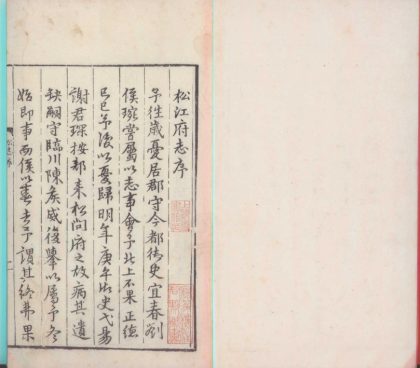 松江府志序
予往歲憂居郡守今都御史宜春劉
侯琬嘗屬以志事會予北上不果正德
己巳予復以憂歸明年庚午御史弋昜
謝君琛按部来松問府之故病其遺
缺嗣守臨川陳侯威復舉以屬予冬
始即事而侯以春去予謂其終弗果